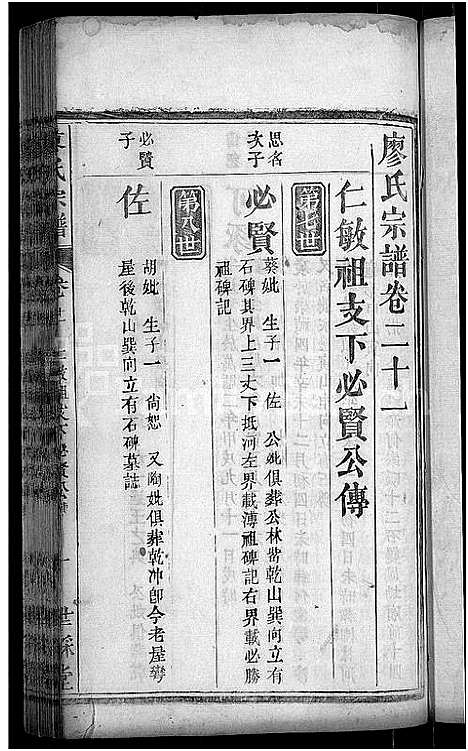 廖氏宗譜卷二十一
仁敏祖支下必賢公傳
第七世
思名次子
必賢
葵妣 生子一 佐 公妣俱葬公林嵛乾山巽向立有
石碑其界上三丈下抵河左界載溥祖碑記右界載必勝
祖碑記
第八世
必賢子
佐
胡妣 生子一 尚恕 又陶妣俱葬乾冲卽今老屋彎
屋後乾山巽向立有石碑墓誌
氏宗譜
卷
世綵堂